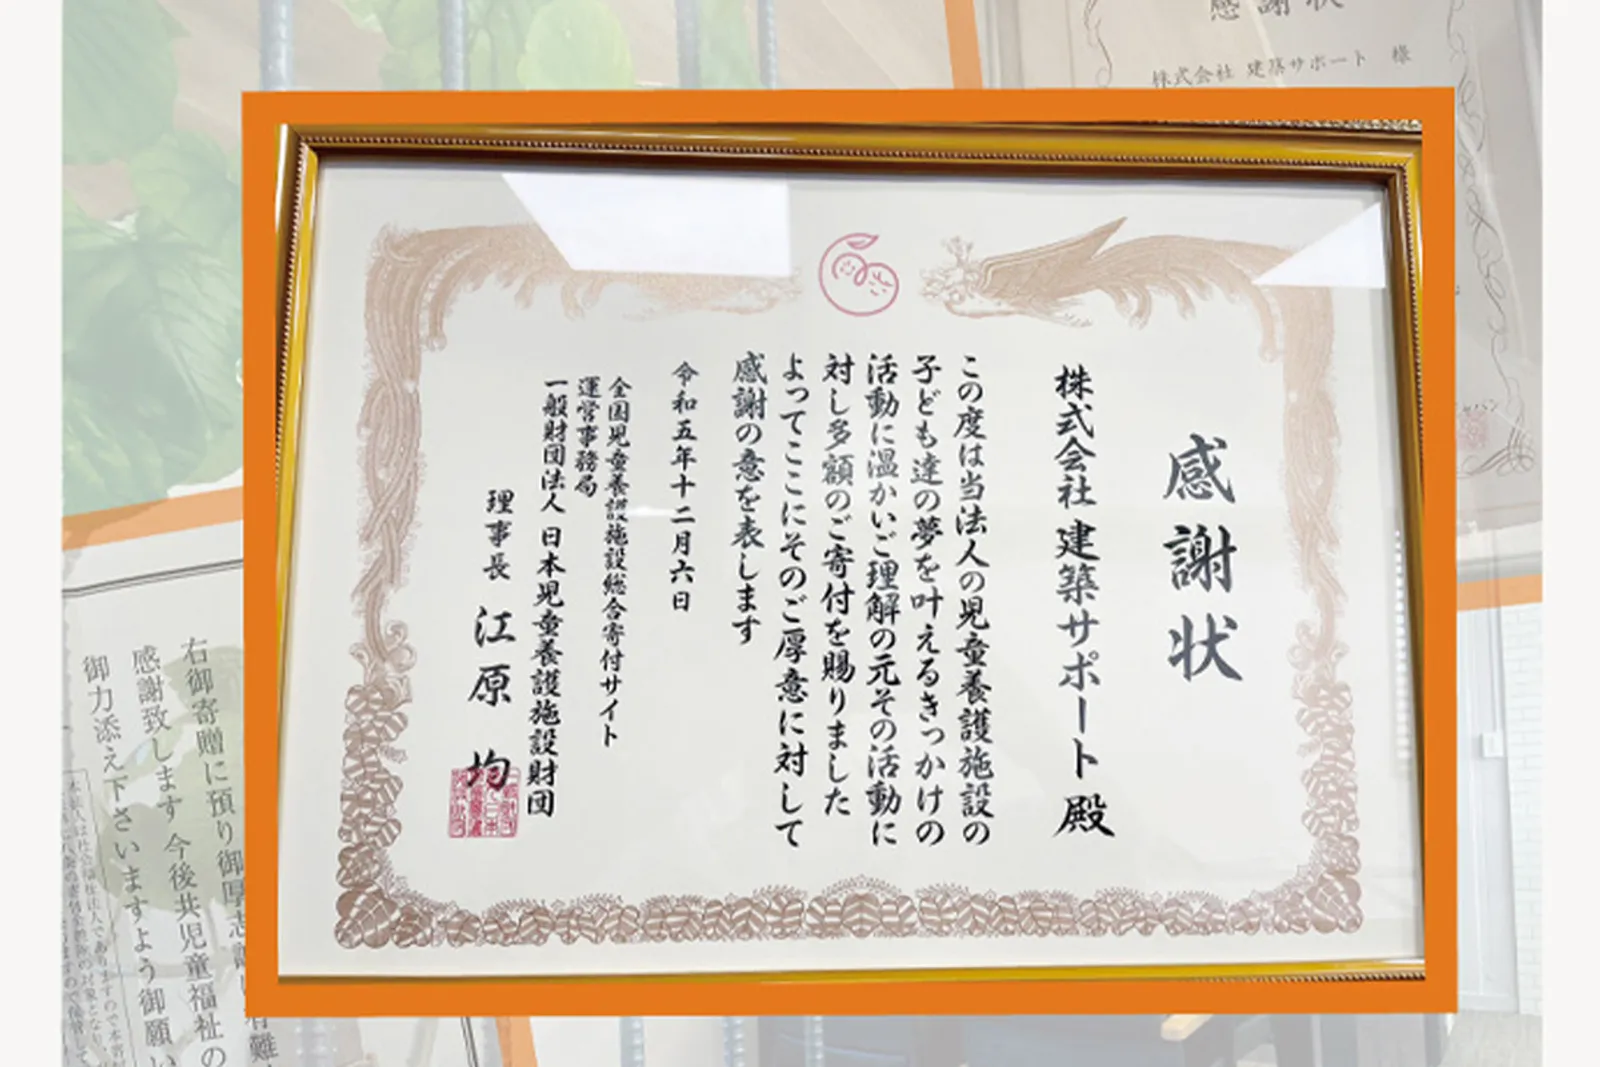 感謝状
株式会社 建築サポート 殿
この度は当法人の児童養護施設の
子ども達の夢を叶えるきっかけの
活動に温かいご理解の元その活動に
対し多額のご寄付を賜りました
よってここにそのご厚意に対して
感謝の意を表します
令和五年十二月六日
全国児童養護施設総合寄付サイト
運営事務局
一般財団法人 日本児童養護施設財団
理事長 江原 均
感謝状
株式会社 建築サポート 様
右御寄贈に預り御厚志
感謝致します 今後共児童福祉の
御力添え下さいますよう御願い